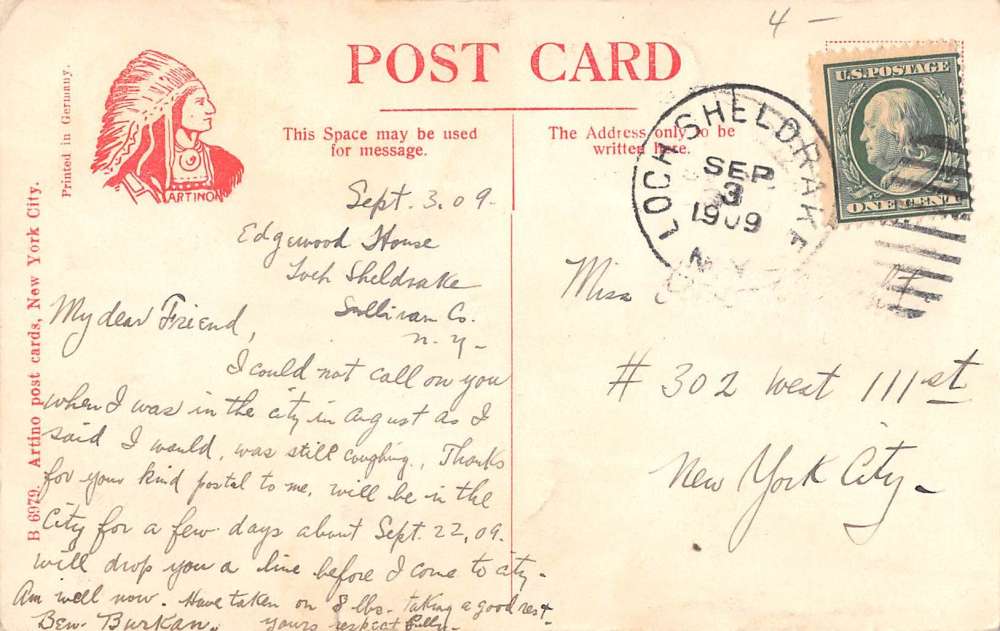 4 -
POST CARD
Printed in Germany.
ARTINO
B 6979. Artino post cards, New York City.
This Space may be used
for message.
The Address only to be
written here.
U.S. POSTAGE
ONE CENT
LOCH SHELDRAKE
SEP
3
1909
N.Y.
Sept. 3, 09-
Edgewood House
Loch Sheldrake
Sullivan Co.
n. y-
My dear Friend,
I could not call on you
when I was in the city in august as I
said I would, was still coughing., Thanks
for your kind postal to me, will be in the
City for a few days about Sept. 22, 09.
will drop you a line before I come to city-
Am well now. Have taken on 8 lbs- taking a good rest
Ben. Burkan. yours respectfully-
Miss
# 302 West 111 st
New York City-